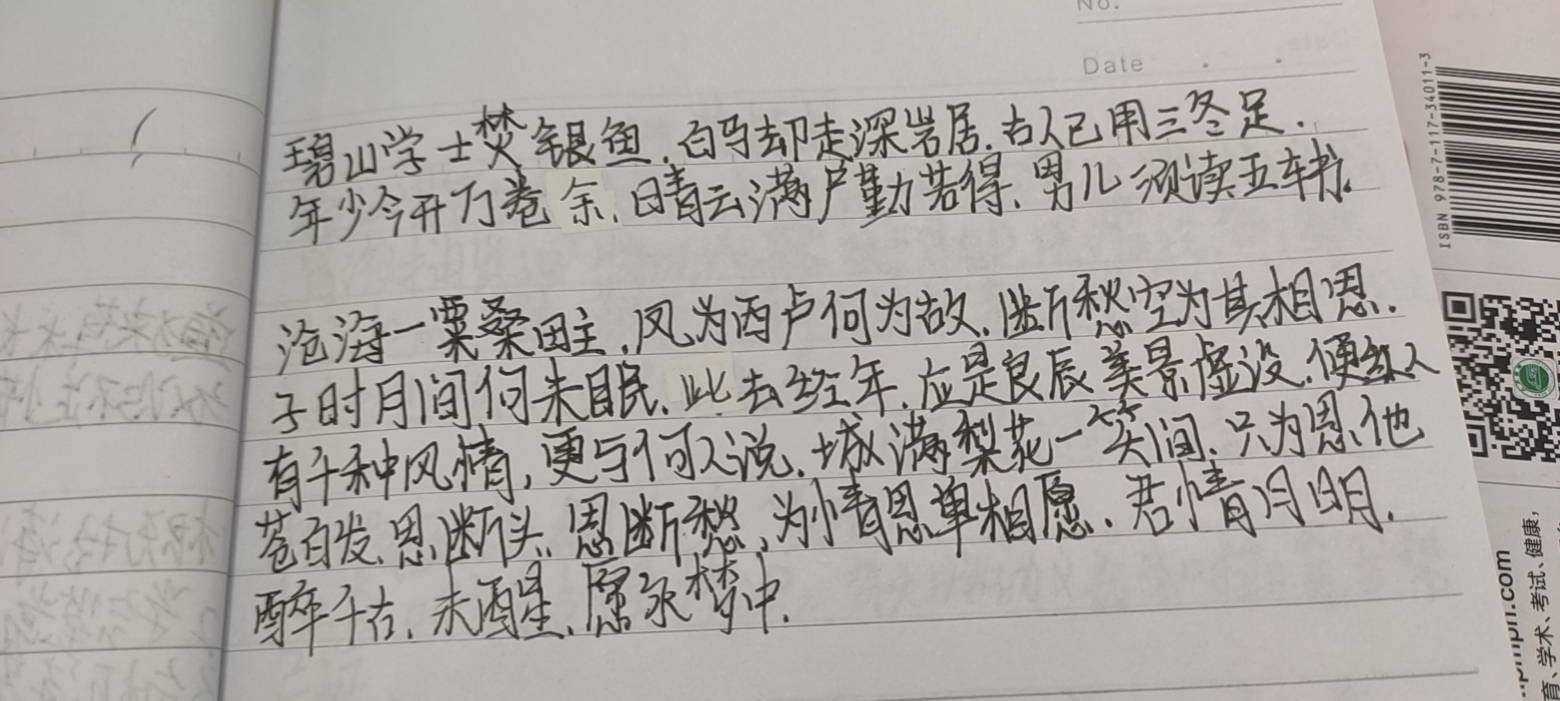 No.
Date
碧山学士焚银鱼.白马却走深岩居.古人已用三冬足.
年少今开万卷余.晴云满户勤苦得.男儿须读五车书.
沧海一粟桑田主.风为西卢何为故.断愁空为其相思.
子时月间何未眠.此去经年.应是良辰美景虚设.便纵人
有千种风情,更与何人说.城满梨花一笑间.只为思他
苍白发.思断头.思断愁,为情思单相愿.君情月明.
醉千古.未醒.愿永梦中.
ISBN 978-7-117-34011-3
.com
学术、考试、健康,